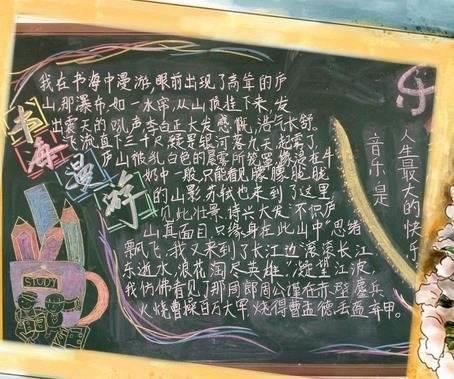 书海漫游
我在书海中漫游,眼前出现了高耸的庐
山,那瀑布如一水帘,从山顶挂下来,发
出震天的吼声,李白正大发感慨,浩气长舒。
"飞流直下三千尺,疑是银河落九天"起雾了,
庐山被乳白色的晨雾所笼罩,像浸在牛
奶中一般,只能看见朦朦胧胧
的山影,苏轼也来到了这里
见此壮景,诗兴大发"不识庐
山真面目,只缘身在此山中"思绪
飘飞,我又来到了长江边"滚滚长江
东逝水,浪花淘尽英雄",眺望江波,
我仿佛看见了那周郎周公瑾在赤壁鏖兵
火烧曹操百万大军,烧得曹孟德丢盔弃甲。
STUDY
乐
音乐是
人生最大的快乐